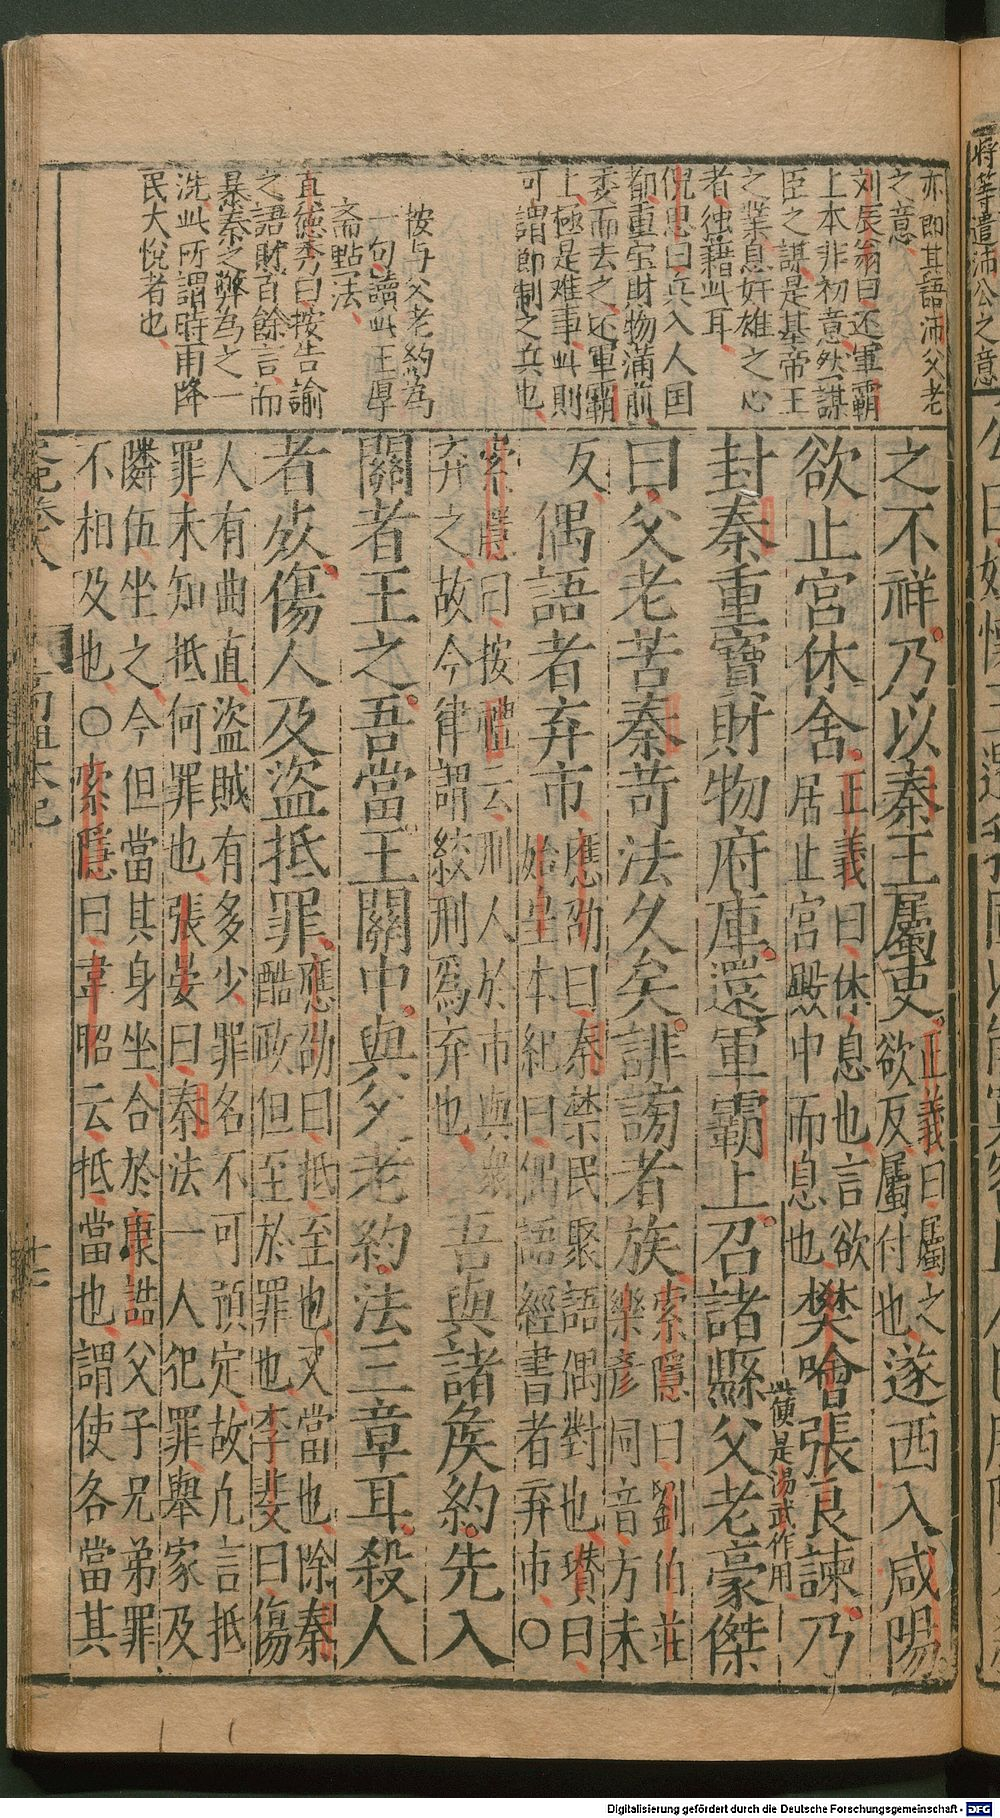 亦即其語沛父老
之意
刘辰翁曰还軍霸
上本非初意然謀
臣之謀是基帝王
之業息奸雄之心
者独藉此耳
倪思曰兵入人国
都重宝財物滿前
委而去之还軍霸
上極是难事此則
可謂節制之兵也
按与父老約為
句讀此王厚
斋點法
真德秀曰按告諭
之語財百餘言而
暴秦之弊為之一
洗此所謂時雨降
民大悅者也
之不祥乃以秦王屬吏正義曰屬之
欲反屬付也遂西入咸陽
欲止宮休舍正義曰休息也言欲
居止宮殿中而息也樊噲張良諫乃
儼是湯武作用
封秦重寶財物府庫還軍霸上召諸縣父老豪傑
曰父老苦秦苛法久矣誹謗者族索隱曰劉伯莊
樂彥同音方未
反偶語者弃市應劭曰秦禁民聚語偶對也瓉曰
始皇本紀曰偶語經書者弃市〇
索隱曰按禮云刑人於市與衆
弃之故今律謂絞刑爲弃也吾與諸侯約先入
關者王之吾當王關中與父老約法三章耳殺人
者死傷人及盜抵罪應劭曰抵至也又當也除秦
酷政但至於罪也李斐曰傷
人有曲直盜賊有多少罪名不可預定故凢言抵
罪未知抵何罪也張晏曰秦法一人犯罪舉家及
隣伍坐之今但當其身坐合於康誥父子兄弟罪
不相及也〇索隱曰韋昭云抵當也謂使各當其
史記卷八
高祖本紀
廿七
將等遣沛公之意
Digitalisierung gefördert durch die Deutsche Forschungsgemeinschaft - DFG